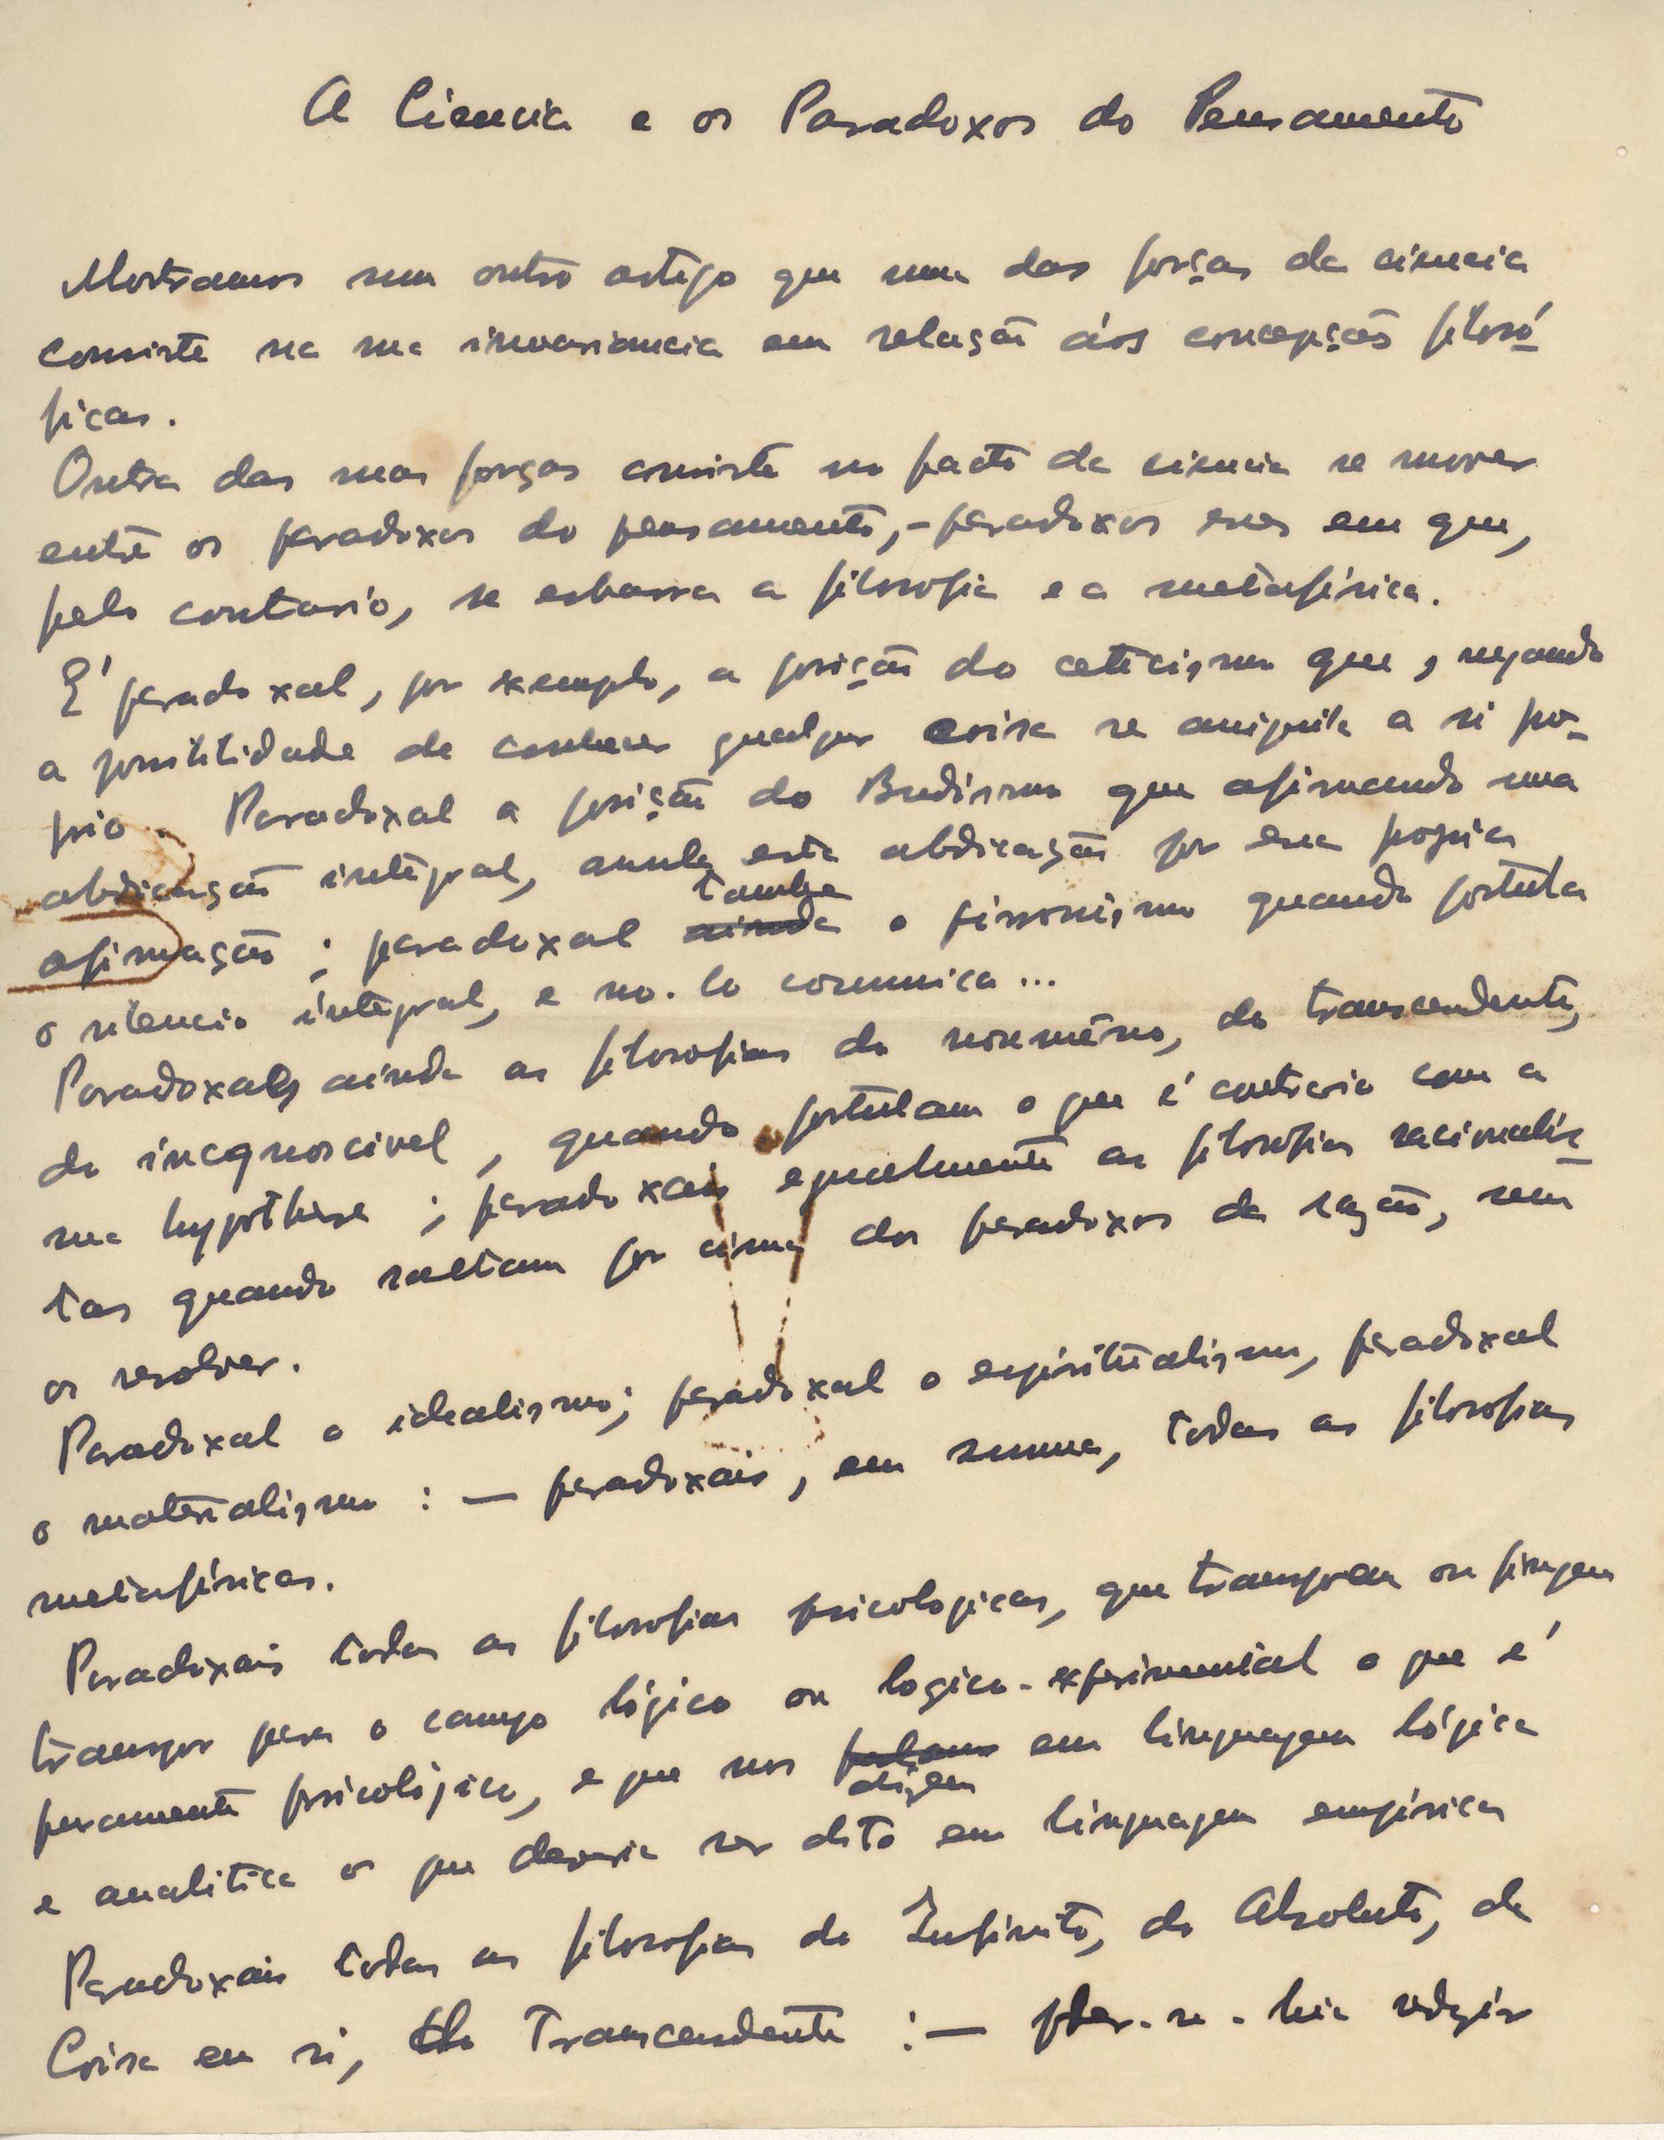 A Ciencia e os Paradoxos do Pensamento
Mostramos num outro artigo que uma das forças da ciencia
consiste na sua invariancia em relação ás concepções filosó-
ficas.
Outra das suas forças consiste no facto da ciencia se mover
entre os paradoxos do pensamento, - paradoxos esses em que,
pelo contrario, se esbarra a filosofia e a metafísica.
É paradoxal, por exemplo, a posição do ceticismo que, negando
a possibilidade de conhecer qualquer coisa se aniquila a si pró-
prio. Paradoxal a posição do Budismo que afirmando uma
abdicação integral, anula esta abdicação por essa propria
afirmação; paradoxal ainda tambem o pirronismo quando postula
o silencio integral, e no-lo comunica...
Paradoxais ainda as filosofias do noumêno, do transcendente,
do incognoscivel, quando postulam o que é contrario com a
sua hypothese; paradoxais egualmente as filosofias racionalis-
tas quando saltam por cima dos paradoxos da razão, sem
os resolver.
Paradoxal o idealismo; paradoxal o espiritualismo, paradoxal
o materialismo : — paradoxais, em suma, todas as filosofias
metafísicas.
Paradoxais todas as filosofias psicologicas, que transpoem ou fingem
transpor para o campo lógico ou logico-experimental o que é
puramente psicológico, e que nos falam dizem em linguagem lógica
e analitica o que deveria ser dito em linguagem empírica
Paradoxais todas as filosofias do Infinito, do Absoluto, da
Coisa em si, do Transcendente : — poder-se-hia redigir